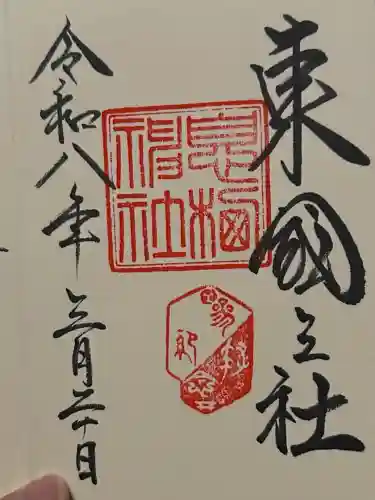 東國三社
息栖神社
令和八年三月二十日